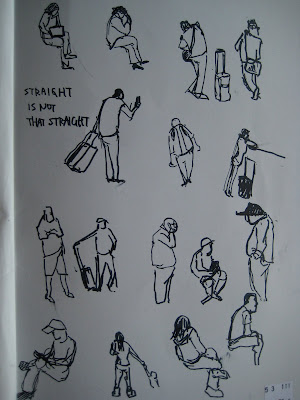 STRAIGHT
IS NOT
THAT STRAIGHT